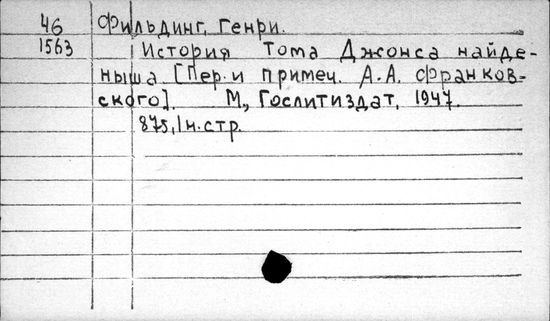 46 Фильдинг, Генри.
1563 История Тома Джонса найде-
ныша [Пер. и примеч. А.А. Франков-
ского]. М., Гослитиздат, 1947.
875, 1 н. стр.